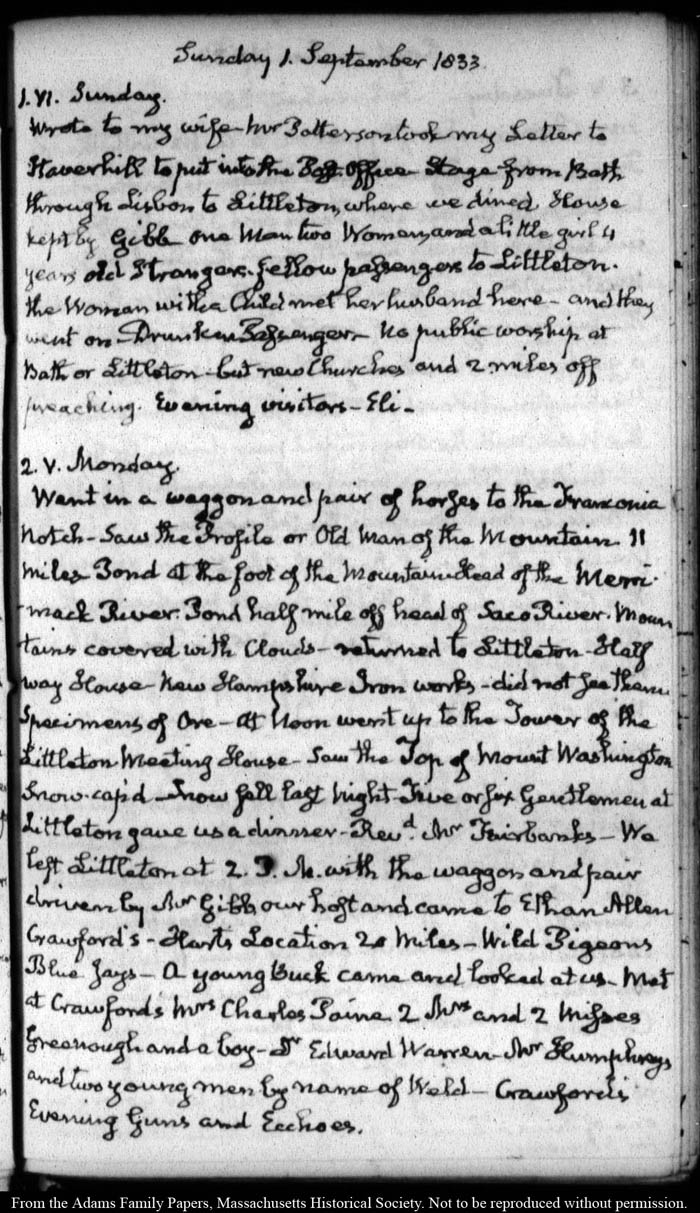 Sunday 1. September 1833.
1. VI. Sunday.
Wrote to my wife Mr Batterson took my Letter to
Haverhill to put into the Post Office Stage from Bath
through Lisbon to Littleton, where we dined. House
kept by Gibb one Man two Women, and a little girl 4
years old Strangers. fellow passengers to Littleton.
the Woman with a Child met her husband here — and they
went on — Drunken Passenger — No public worship at
Bath or Littleton — but new Churches and 2 miles off
preaching. Evening visitors — Eli —
2. V. Monday.
Went in a waggon and pair of horses to the Franconia
Notch — Saw the Profile or Old Man of the Mountain 11
miles Pond at the foot of the Mountain Head of the Merri-
mack River. Pond half mile off head of Saco River. Moun
tains covered with Clouds — returned to Littleton — Half
way House — New Hampshire Iron works — did not see them
Specimens of Ore — At Noon went up to the Tower of the
Littleton Meeting House — Saw the Top of Mount Washington
Snow-cap'd — Snow fell last Night — Five or six Gentlemen at
Littleton gave us a dinner — Revd. Mr Fairbanks — We
left Littleton at 2. P. M. with the waggon and pair
driven by Mr Gibb our host and came to Ethan Allen
Crawford's — Harts Location 20 Miles — Wild Pigeons
Blue Jays — A young Buck came and looked at us — Met
at Crawford's Mrs Charles Paine 2 Mrs and 2 Misses
Greenough and a boy — Dr Edward Warren — Mr Humphreys
and two young men by name of Weld — Crawford's
Evening Guns and Ecchoes.
From the Adams Family Papers, Massachusetts Historical Society. Not to be reproduced without permission.